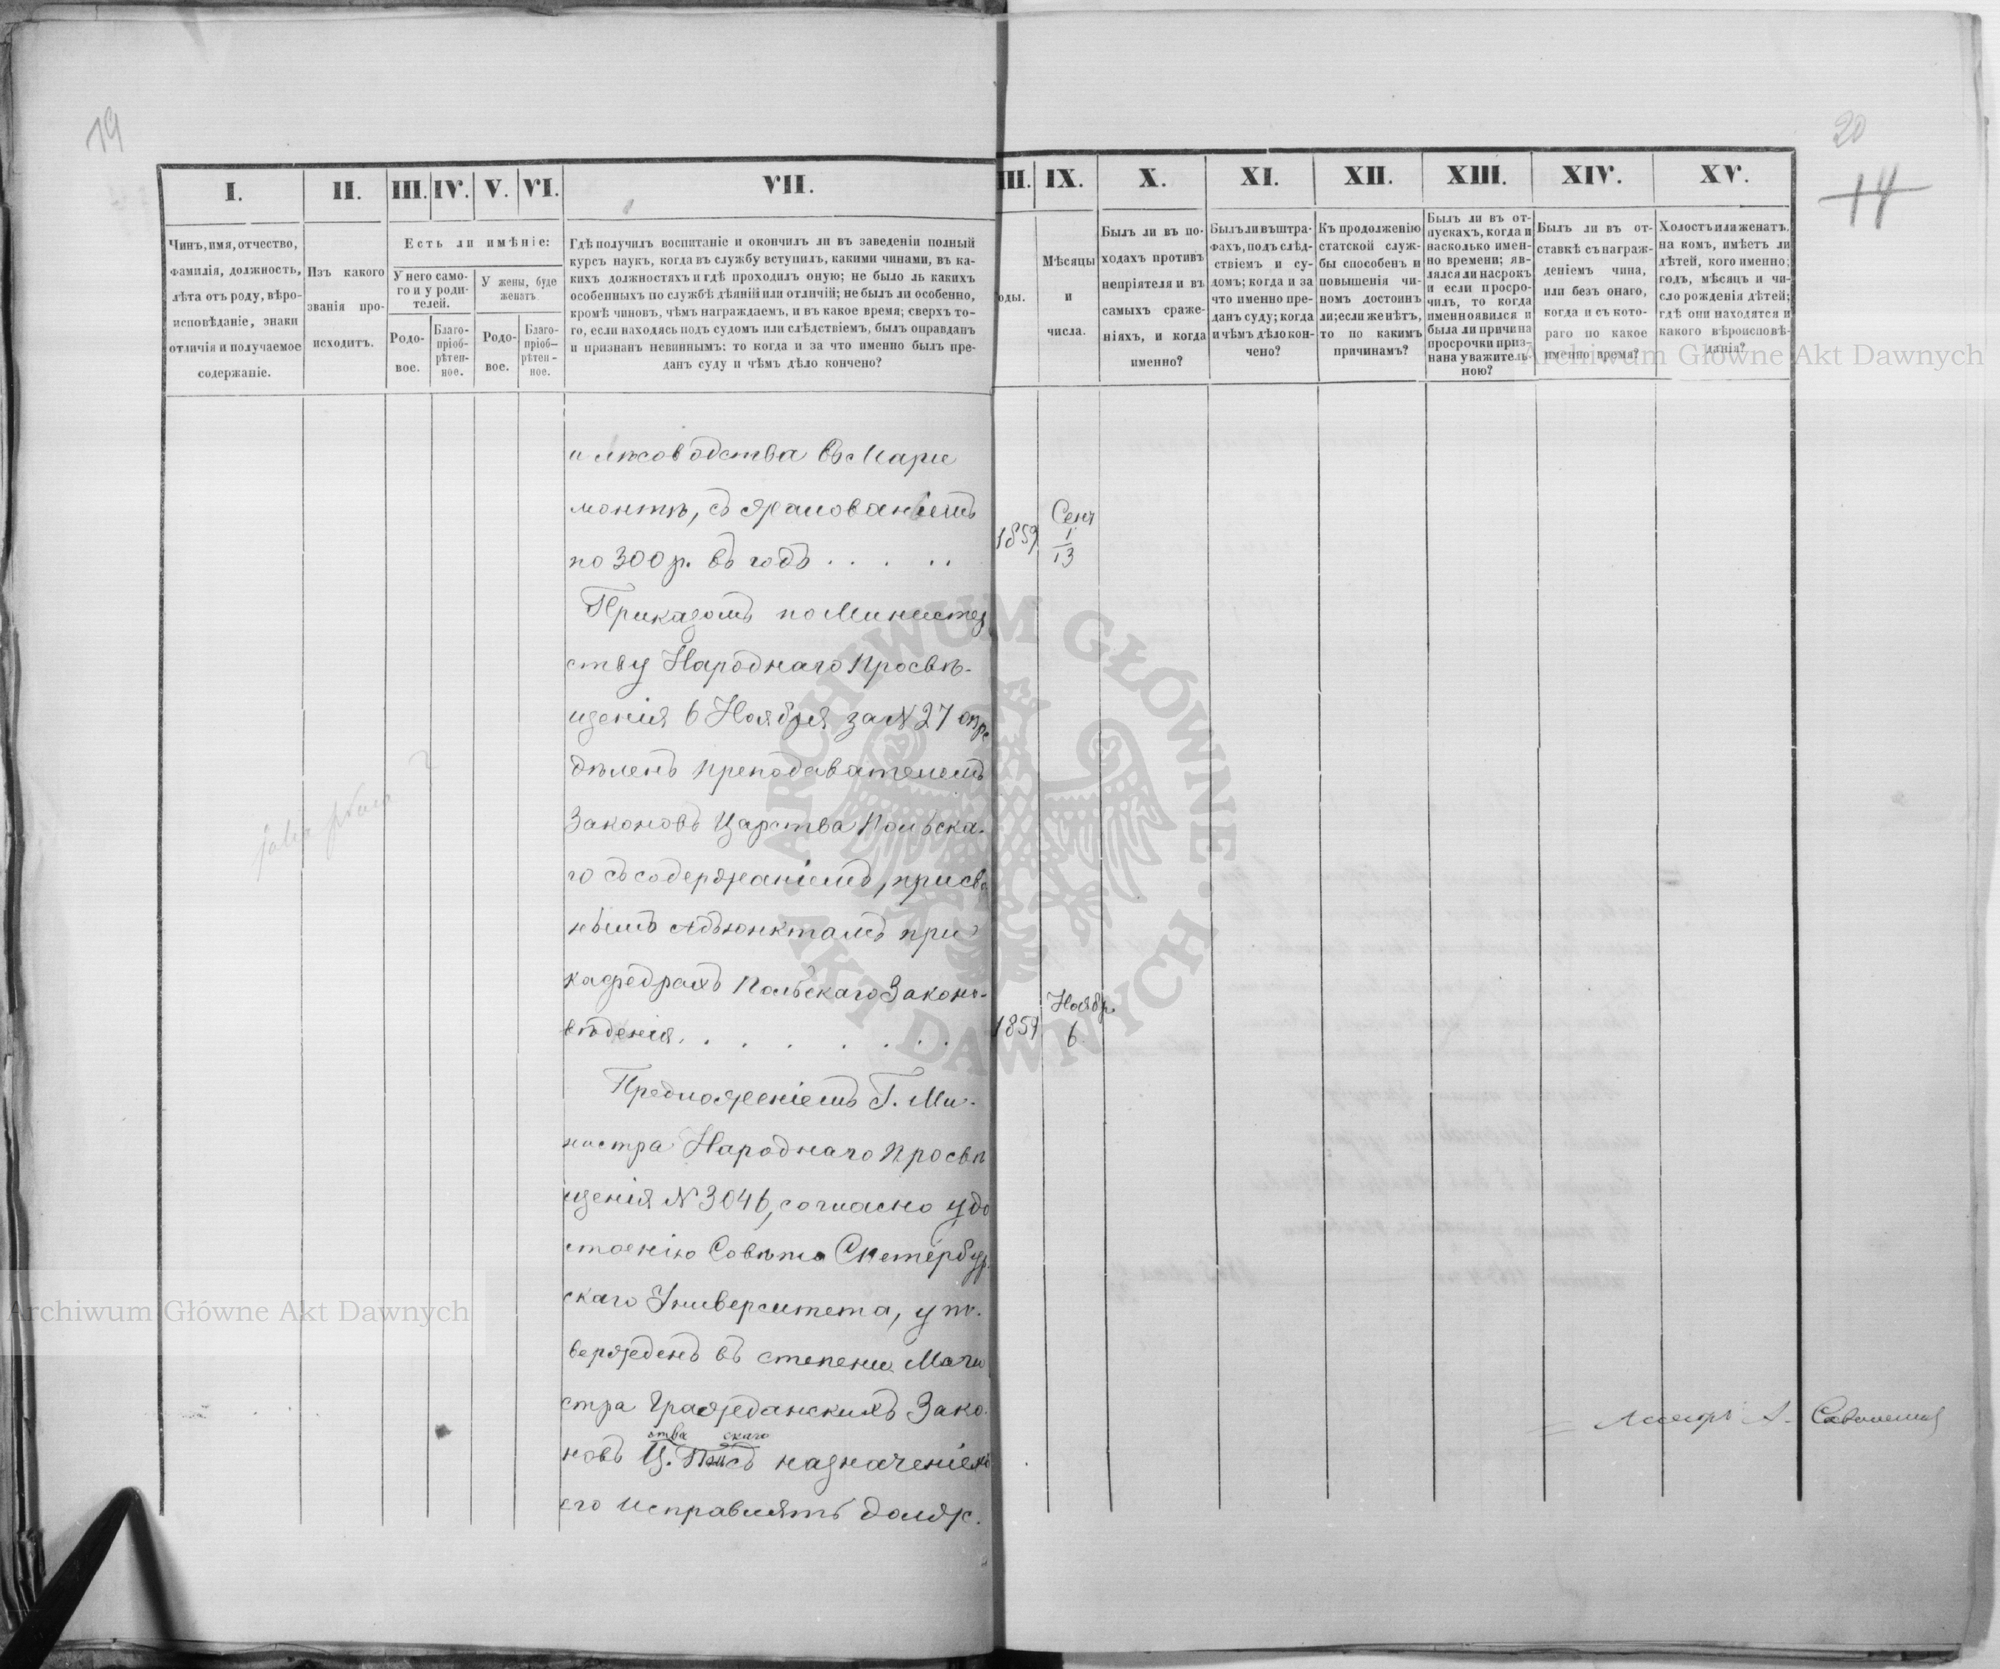 19
20
14
I.
II.
III.
IV.
V.
VI.
VII.
III.
IX.
X.
XI.
XII.
XIII.
XIV.
XV.
Чинъ, имя, отчество,
фамилія, должность,
лѣта отъ роду, вѣро-
исповѣданіе, знаки
отличія и получаемое
содержаніе.
Изъ какого
званія про-
исходитъ.
Есть ли имѣніе:
У него само-
го и у роди-
телей.
У жены, буде
женатъ.
Родо-
вое.
Благо-
пріоб-
рѣтен-
ное.
Родо-
вое.
Благо-
пріоб-
рѣтен-
ное.
Гдѣ получилъ воспитаніе и окончилъ ли въ заведеніи полный
курсъ наукъ, когда въ службу вступилъ, какими чинами, въ ка-
кихъ должностяхъ и гдѣ проходилъ оную; не было ль какихъ
особенныхъ по службѣ дѣяній или отличій; не былъ ли особенно,
кромѣ чиновъ, чѣмъ награждаемъ, и въ какое время; сверхъ то-
го, если находясь подъ судомъ или слѣдствіемъ, былъ оправданъ
и признанъ невиннымъ: то когда и за что именно былъ пре-
данъ суду и чѣмъ дѣло кончено?
оды.
Мѣсяцы
и
числа.
Былъ ли въ по-
ходахъ противъ
непріятеля и въ
самыхъ сраже-
ніяхъ, и когда
именно?
Былъ ли въ штра-
фахъ, подъ слѣд-
ствіемъ и су-
домъ; когда и за
что именно пре-
данъ суду; когда
и чѣмъ дѣло кон-
чено?
Къ продолженію
статской служ-
бы способенъ и
повышенія чи-
номъ достоинъ
ли; если же нѣтъ,
то по какимъ
причинамъ?
Былъ ли въ от-
пускахъ, когда и
насколько имен-
но времени; яв-
лялся ли на срокъ
и если просро-
чилъ, то когда
именно явился и
была ли причина
просрочки приз-
нана уважитель-
ною?
Былъ ли въ от-
ставкѣ съ награж-
деніемъ чина,
или безъ онаго,
когда и съ кото-
раго по какое
именно время?
Холостъ или женатъ,
на комъ, имѣетъ ли
дѣтей, кого именно;
годъ, мѣсяцъ и чи-
сло рожденія дѣтей;
гдѣ они находятся и
какого вѣроисповѣ-
данія?
и лѣсоводства въ Мари
монтѣ, съ жалованіемъ
по 300 р. въ годъ . . . . .
1859
Сент
1
13
Приказомъ по Министер
ству Народнаго Просвѣ-
щенія 6 Ноября за N 27 опре
дѣленъ преподавателемъ
Законовъ Царства Польска-
го съ содержаніемъ, присво
ннымъ Адъюнктамъ при
кафедрахъ Польскаго Законо-
вѣденія. . . . . . .
1859
Ноябр.
6
Предложеніемъ Г. Ми-
нистра Народнаго Просвѣ
щенія N 3046, согласно удо
стоенію Совѣта СПетербур
скаго Университета, ут-
вержденъ въ степени Маги
стра Гражданскихъ Зако-
новъ Ц.ства П.скаго съ назначеніемъ
его исправлять долж.
Archiwum Główne Akt Dawnych
Archiwum Główne Akt Dawnych
ARCHIWUM GŁÓWNE AKT DAWNYCH